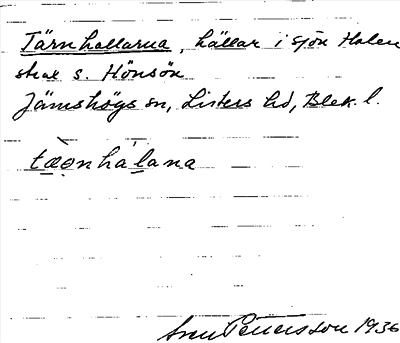 Tärnhallarna, hällar i sjön Halen
strax s. Hönsön
Jämshögs sn, Listers hd, Blek. l.
tæ̀ǝnhálana
Sven Pettersson 1936